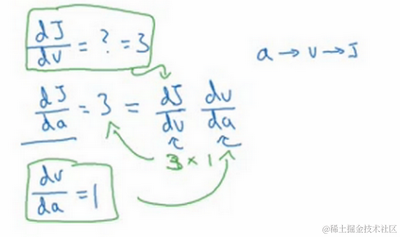 dJ/dv = ? = 3
a → v → J
dJ/da = 3 = dJ/dv dv/da
3 × 1
dv/da = 1
@稀土掘金技术社区